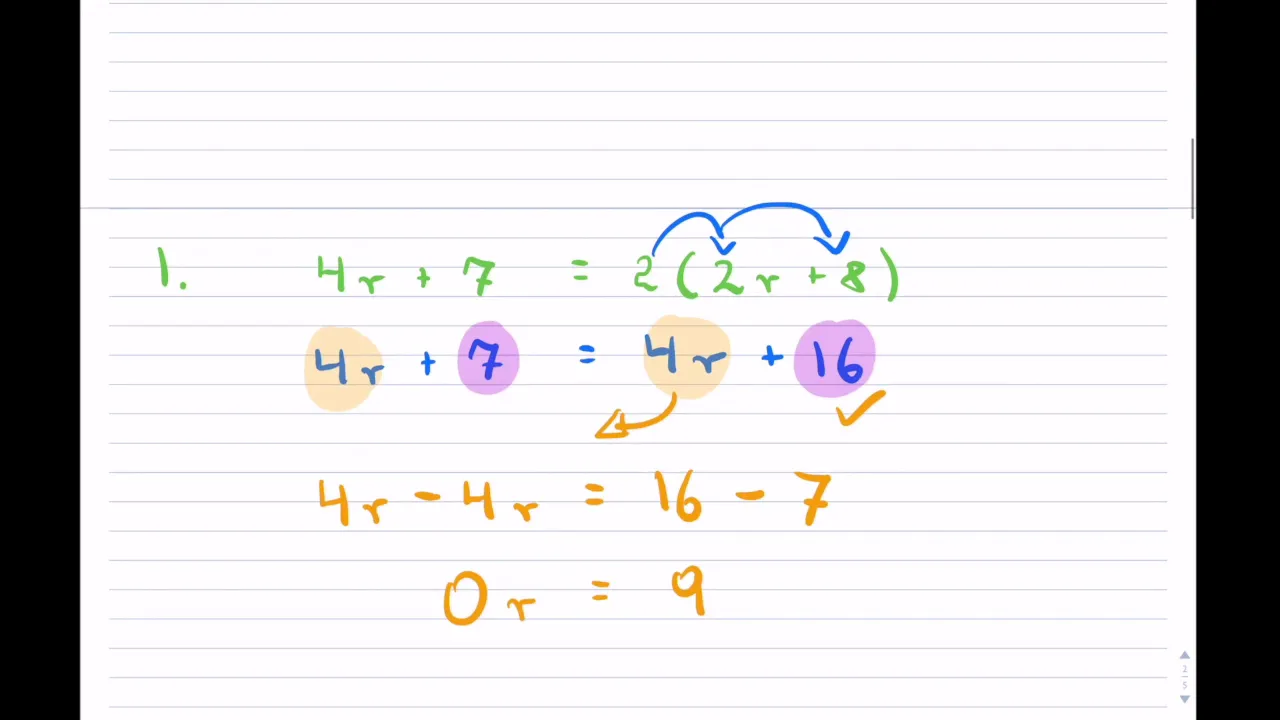 1. 4r + 7 = 2(2r + 8)
4r + 7 = 4r + 16
4r - 4r = 16 - 7
0r = 9
2
5